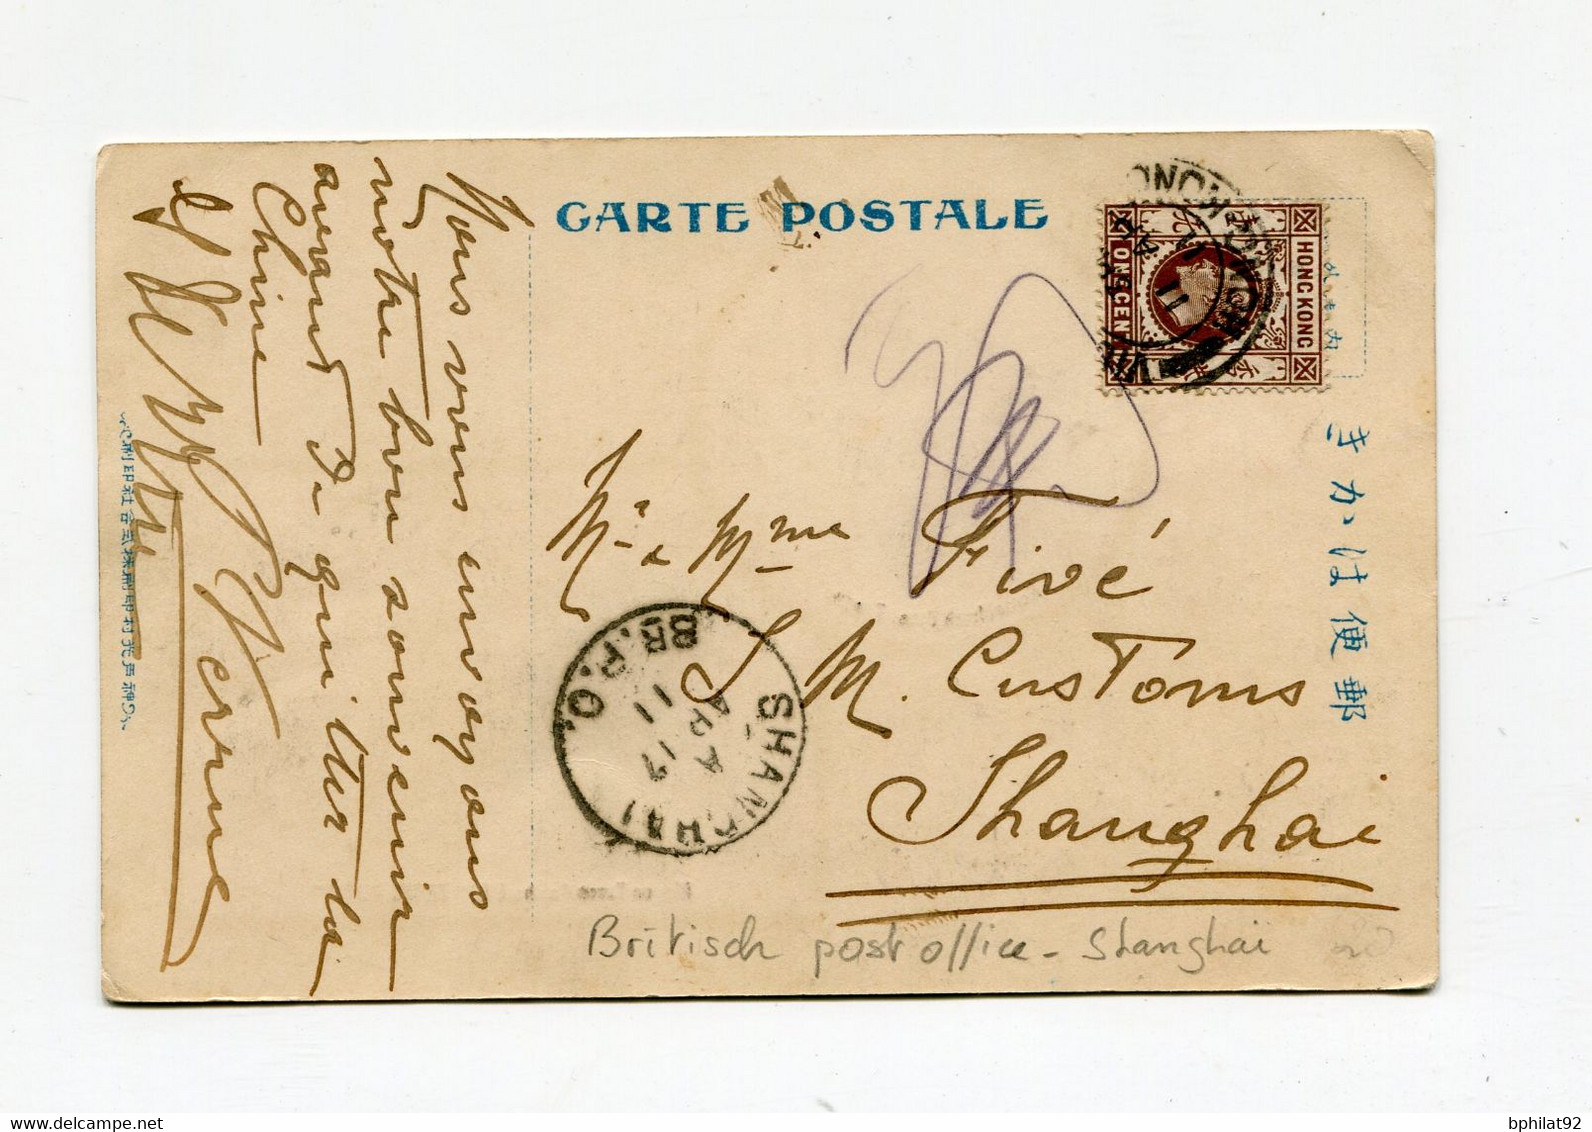 CARTE POSTALE
HONG KONG
ONE CENT
きかは便郵
Nous vous envoyons
notre bon souvenir
avant de quitter la
Chine
Mr & Mme Fivé
I. M. Customs
Shanghai
SHANGHAI
BR. P.O.
A
AP 17
11
Britisch post office - Shanghaï
bphilat92